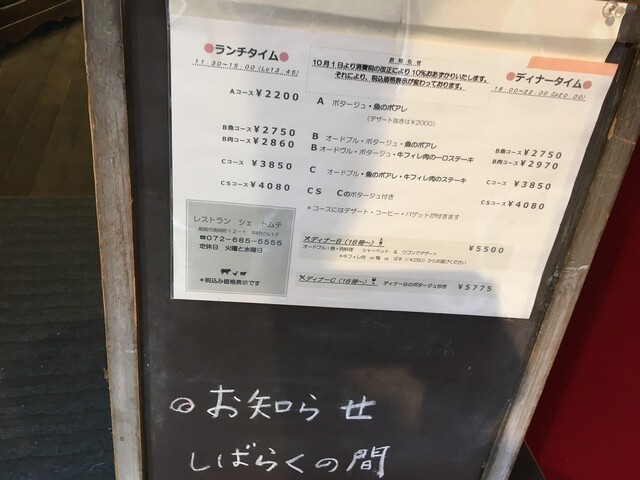 ●ランチタイム●
11:30~15:00(Lo13:45)
Aコース¥2200
B魚コース¥2750
B肉コース¥2860
Cコース ¥3850
CSコース¥4080
お知らせ
10月1日より消費税の改正により10%おあずかりいたします。
それにより、税込価格表示が変わっております。
A ポタージュ・魚のポアレ
(デザート抜きは¥2000)
B オードブル・ポタージュ・魚のポアレ
B オードヴル・ポタージュ・牛フィレ肉の一口ステーキ
C オードブル・魚のポアレ・牛フィレ肉のステーキ
CS Cのポタージュ付き
*コースにはデザート・コーヒー・バゲットが付きます
●ディナータイム●
18:00~22:00(Lo20:00)
B魚コース¥2750
B肉コース¥2970
Cコース ¥3850
CSコース¥4080
レストラン シェ トムテ
☎072-685-5555
定休日 火曜と水曜日
*税込み価格表示です
ディナーB(18時~)
オードブル・魚・肉料理 シャーベット & ワゴンでデザート
¥5500
ディナーC(18時~)
ディナーBのポタージュ付き ¥5775
◎お知らせ
しばらくの間